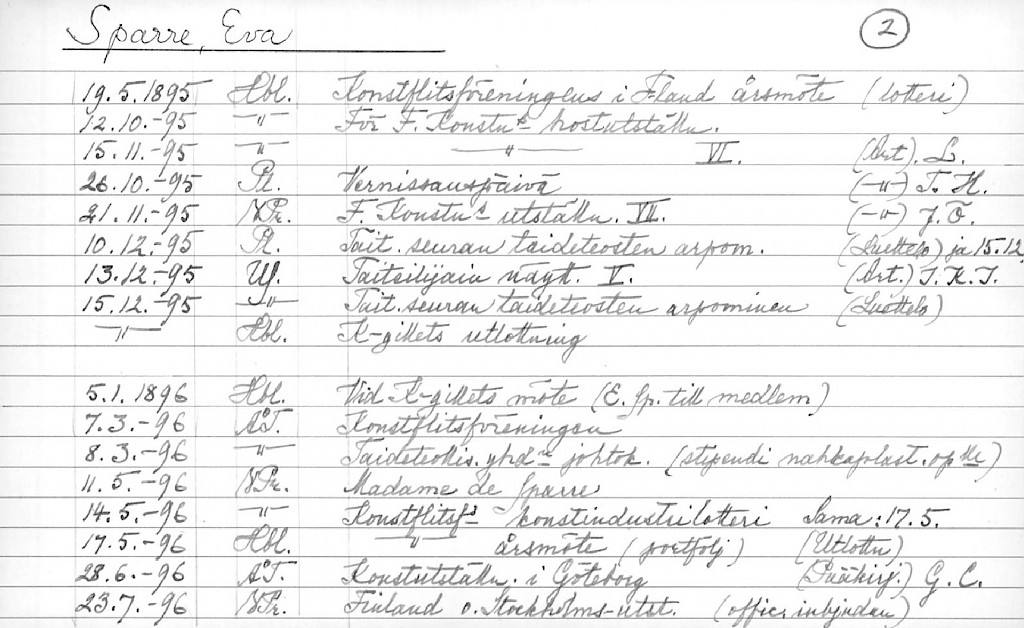 Sparre, Eva 2
19.5.1895 Hbl. Konstflitsföreningens i F-land årsmöte (lotteri)
12.10.-95 -"- För F. Konstn:s höstutställn.
15.11.-95 -"- VI. (Art). L.
26.10.-95 Pl. Vernissauspäivä (-"-) T. H.
21.11.-95 NPr. F. Konstn:s utställn. VII. (-"-) J. Ö.
10.12.-95 Pl. Tait. seuran taideteosten arpom. (Luettelo) ja 15.12
13.12.-95 Uf. Taiteilijain näyt. V. (Art.) J.K.I.
15.12.-95 -"- Tait. seuran taideteosten arpominen (Luettelo)
-"- Hbl. K-gillets utlottning
5.1.1896 Hbl. Vid K-gillets möte (E. Sp. till medlem)
7.3.-96 ÅT. Konstflitsföreningen
8.3.-96 -"- Taideteollis. yhd:n johtok. (stipendi nahkaplast. op:lle)
11.5.-96 NPr. Madame de Sparre
14.5.-96 -"- Konstflitsf:s konstindustrilotteri Sama: 17.5.
17.5.-96 Hbl. -"- årsmöte (portfölj) (Utlottn)
28.6.-96 ÅT. Konstutställn. i Göteborg (Pääkirj.) G.C.
23.7.-96 NPr. Finland o. Stockholms-utst. (officiell inbjudan)